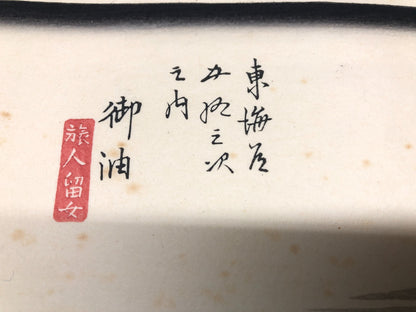 東海道
五拾三次
之内
御油
旅人留女